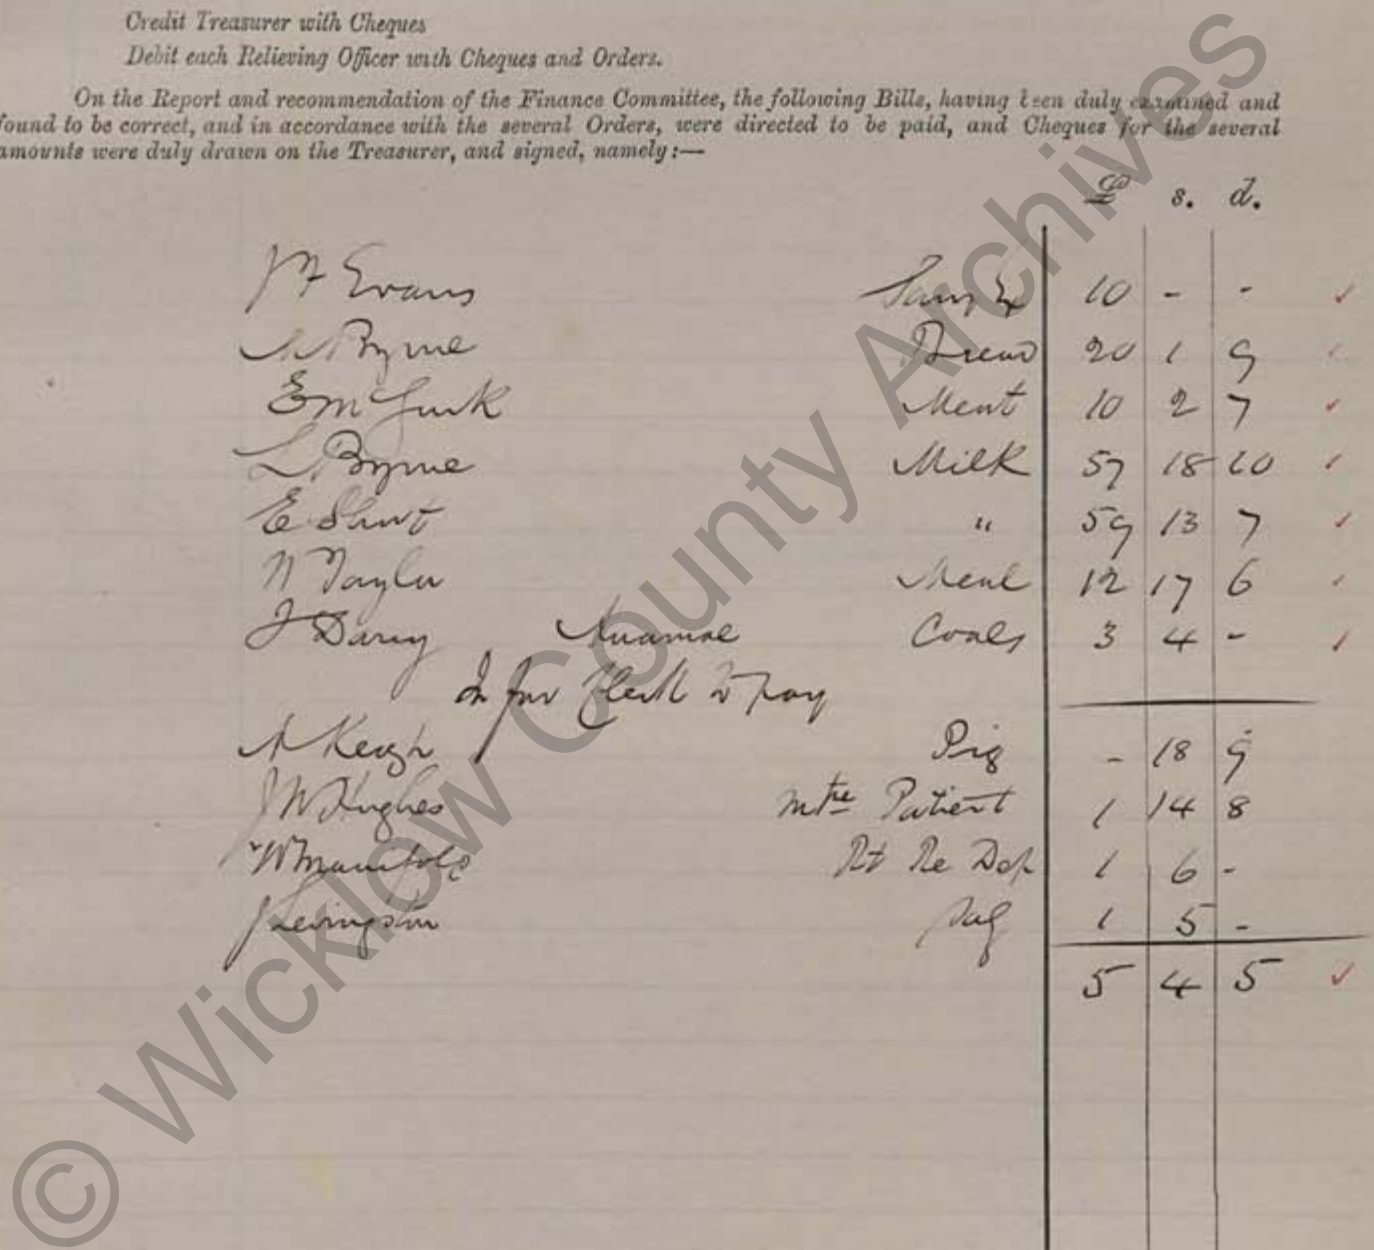 Credit Treasurer with Cheques
Debit each Relieving Officer with Cheques and Orders.
On the Report and recommendation of the Finance Committee, the following Bills, having been duly examined and
found to be correct, and in accordance with the several Orders, were directed to be paid, and Cheques for the several
amounts were duly drawn on the Treasurer, and signed, namely:—
£ s. d.
Evans 10 - -
Byrne Bread 20 1 9
E McGurk Meat 10 2 7
L Byrne Milk 57 18 10
E Short " 59 13 7
Taylor Meal 12 17 6
J Darcy Annamoe Coals 3 4 -
Clerk to pay
Keogh Pig - 18 9
J W Hughes Mtce Patient 1 14 8
W Manifold Rt Re Dep 1 6 -
J Levingston 1 5 -
5 4 5
© Wicklow County Archives